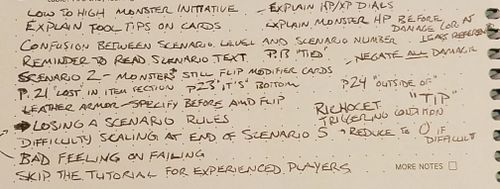 LOW TO HIGH MONSTER INITIATIVE - EXPLAIN HP/XP DIALS
EXPLAIN TOOL TIPS ON CARDS EXPLAIN MONSTER HP BEFORE
DAMAGE (OR AT
LEAST REFERENCE
CONFUSION BETWEEN SCENARIO LEVEL AND SCENARIO NUMBER
REMINDER TO READ SCENARIO TEXT P.13 "TIED" NEGATE ALL DAMAGE
SCENARIO 2 - MONSTERS STILL FLIP MODIFIER CARDS
P.21 "LOST IN ITEM SECTION P23 "IT'S" BOTTOM P24 "OUTSIDE OF"
LEATHER ARMOR - SPECIFY BEFORE AMD FLIP "TIP"
RICHOCET TRIGGERING CONDITION
LOSING A SCENARIO RULES
DIFFICULTY SCALING AT END OF SCENARIO 5 → REDUCE TO 0 IF
DIFFICULT
BAD FEELING ON FAILING
SKIP THE TUTORIAL FOR EXPERIENCED PLAYERS
MORE NOTES